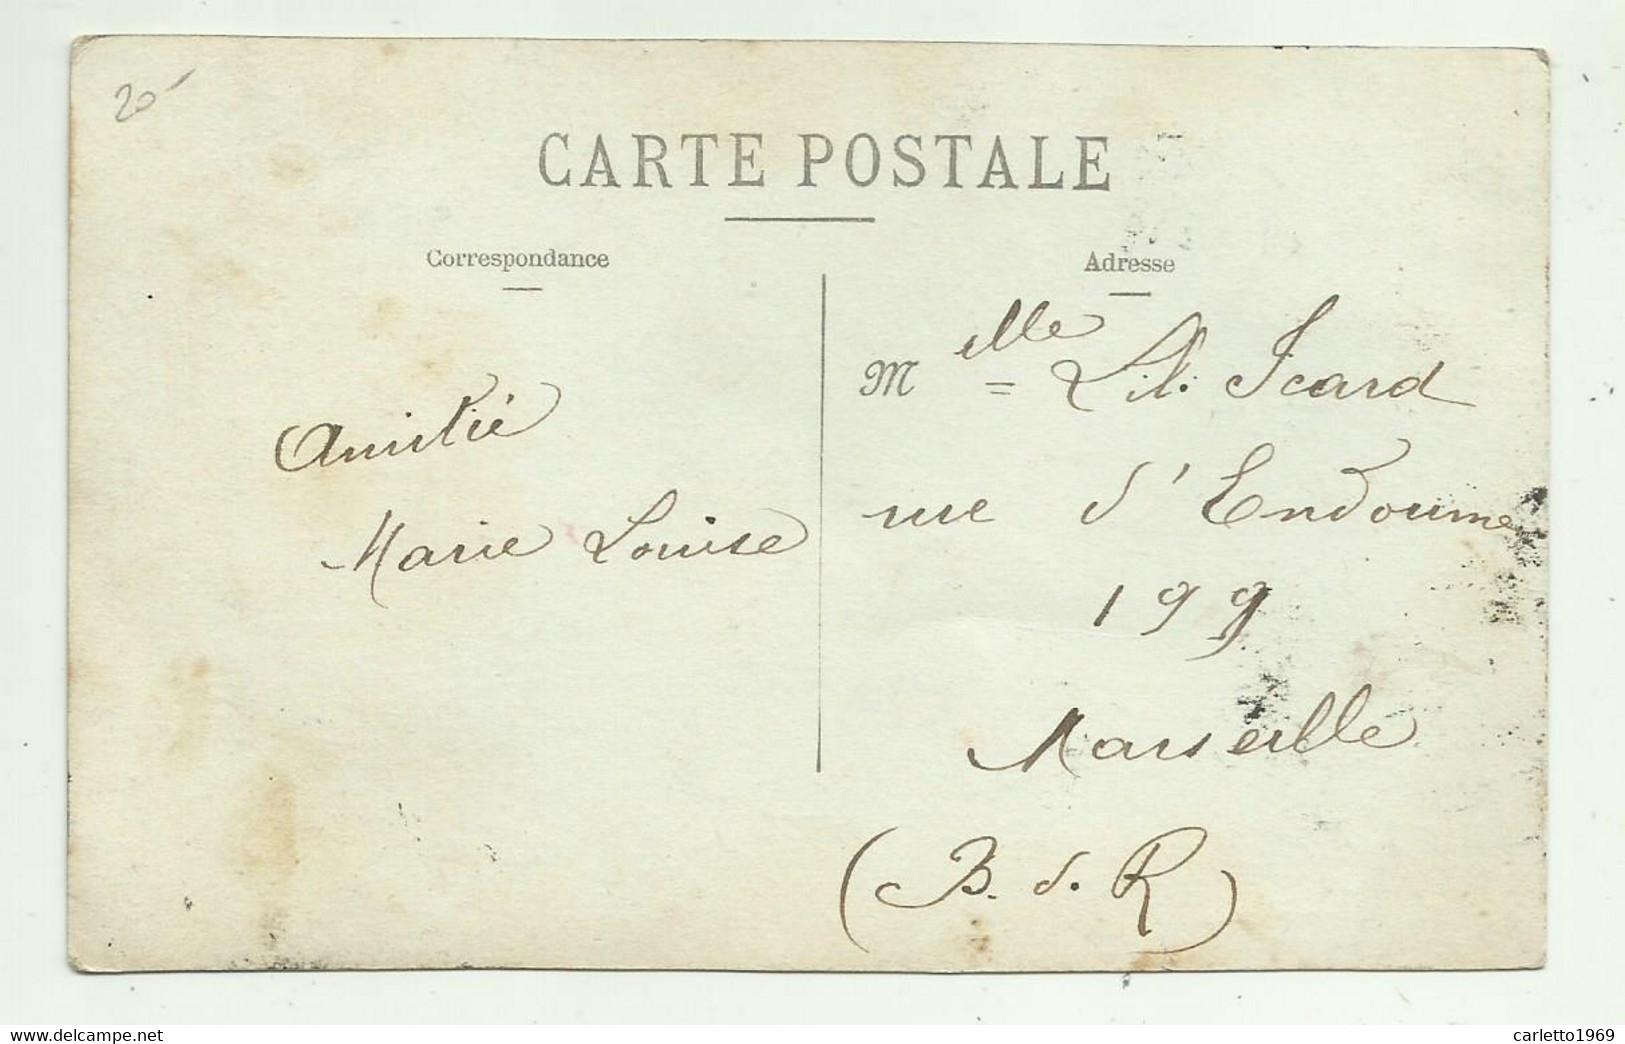 20-
CARTE POSTALE
Correspondance
Adresse
Amitié
Marie Louise
Melle Lil. Icard
rue d'Endoume
199
Marseille
(B. d. R)
www.delcampe.net
carletto1969